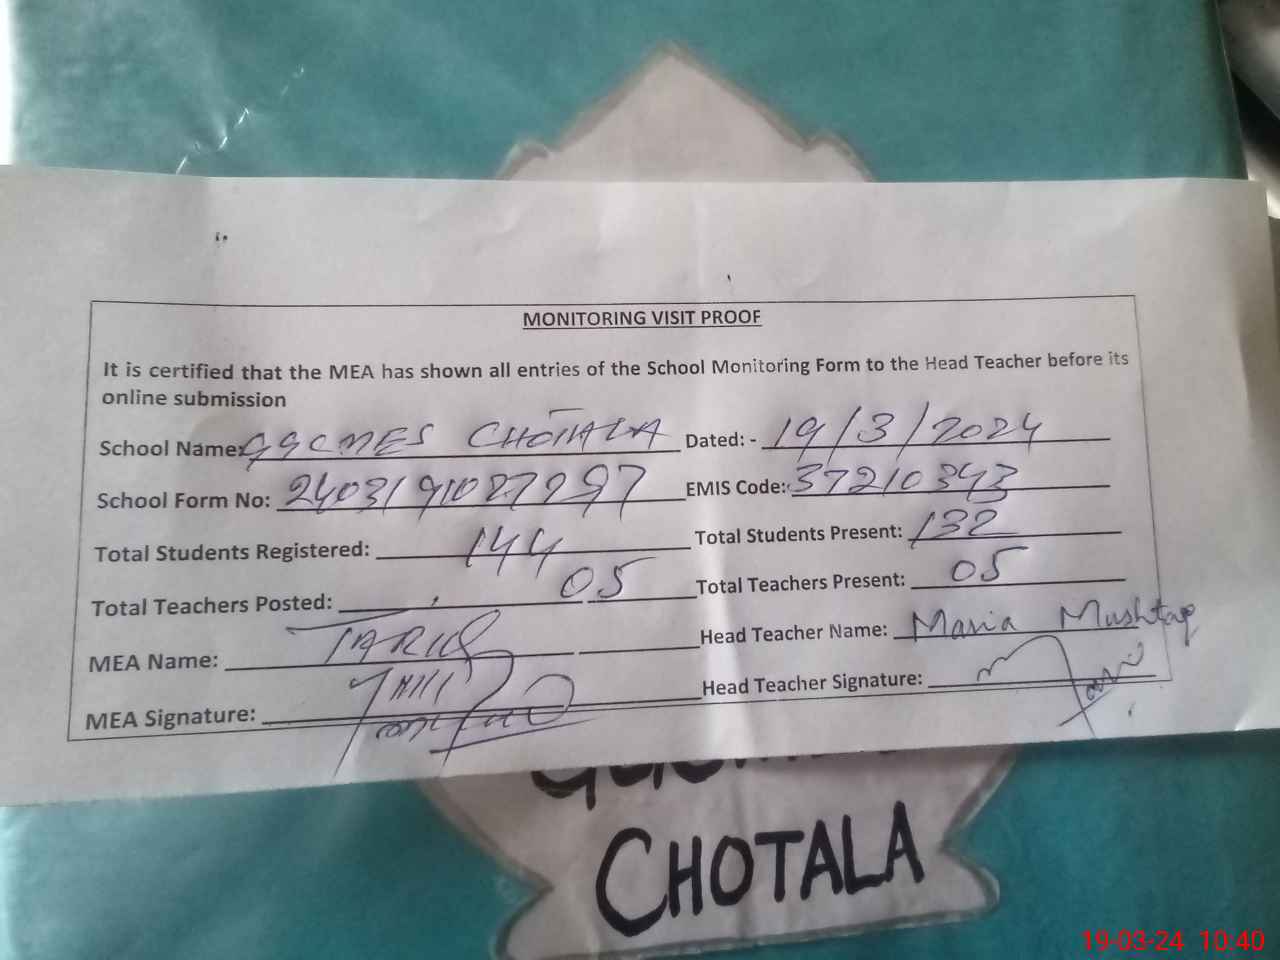 MONITORING VISIT PROOF
It is certified that the MEA has shown all entries of the School Monitoring Form to the Head Teacher before its
online submission
School Name: GGCMES CHOTALA Dated: - 19/3/2024
School Form No: EMIS Code: 37210343
Total Students Registered: 144 Total Students Present: 132
Total Teachers Posted: 05 Total Teachers Present: 05
MEA Name: TARIQ Head Teacher Name: Maria Mushtaq
MEA Signature: Head Teacher Signature:
CHOTALA
19-03-24 10:40